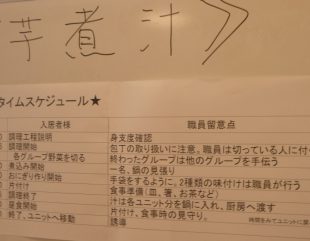 芋煮汁》
タイムスケジュール★
入居者様 職員留意点
調理工程説明 身支度確認
調理開始 包丁の取り扱いに注意。職員は切っている人に付
各グループ野菜を切る 終わったグループは他のグループを手伝う
煮込み開始 一名、鍋の見張り
おにぎり作り開始 手袋をするように。2種類の味付けは職員が行う
片付け 食事準備(皿、箸、お茶など)
調理終了 汁は各ユニット分を鍋に入れ、厨房へ渡す
昼食開始 片付け、食事時の見守り。
終了、ユニットへ移動 誘導
時間をみてユニットに戻